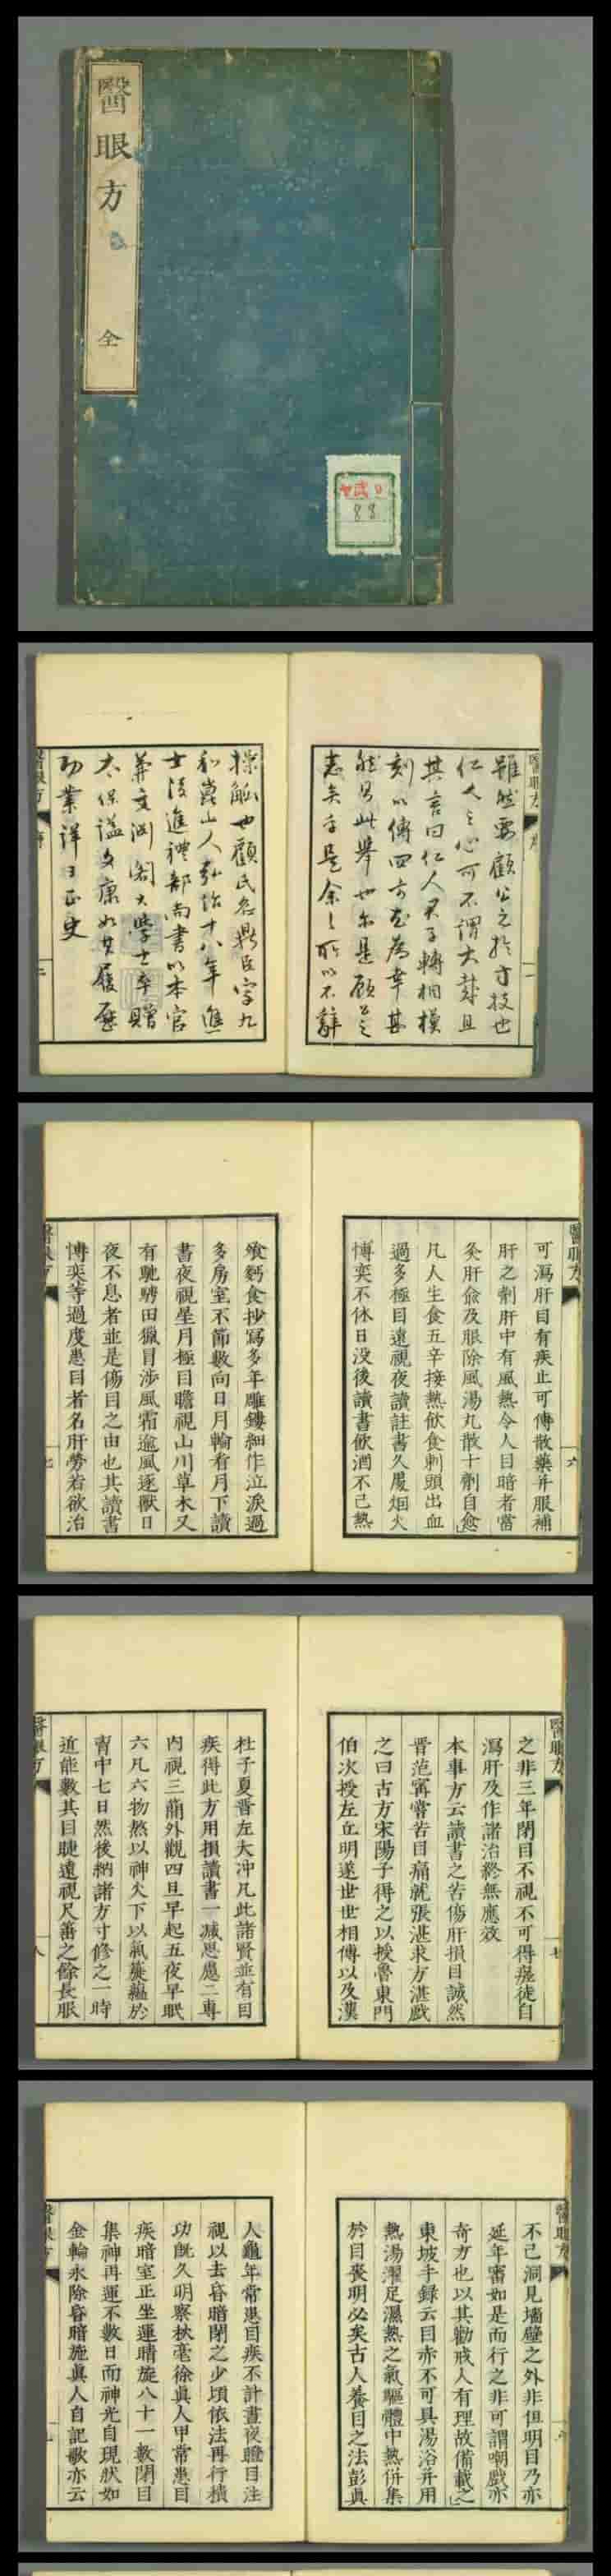 醫眼方
全
88
雖然要顧公之於方技也
仁人之心可不謂大哉且
其言曰仁人君子轉相模
刻以傳四方尤為幸甚
然則此舉也亦是顧公之
志矣乎是余之所以不辭
操觚也顧氏名鼎臣字九
和崑山人弘治十八年進
士後進禮部尚書以本官
兼文淵閣大學士卒贈
太保謚文康如其履歷
功業詳于正史
可瀉肝目有疾止可傳散藥并服補
肝之劑肝中有風熱令人目暗者當
灸肝俞及服除風湯丸散十劑自愈
凡人生食五辛接熱飲食刺頭出血
過多極目遠視夜讀註書久處烟火
博奕不休日没後讀書飲酒不已熱
飡麪食抄寫多年雕鏤細作泣淚過
多房室不節數向日月輪看月下讀
書夜視星月極目瞻視山川草木又
有馳騁田獵冒涉風霜迎風逐獸日
夜不息者並是傷目之由也其讀書
博奕等過度患目者名肝勞若欲治
之非三年閉目不視不可得瘥徒自
瀉肝及作諸治終無應效
本事方云讀書之苦傷肝損目誠然
晉范甯嘗苦目痛就張湛求方湛戲
之曰古方宋陽子得之以授魯東門
伯次授左丘明遂世世相傳以及漢
杜子夏晉左太冲凡此諸賢並有目
疾得此方用損讀書一減思慮二專
内視三簡外觀四旦早起五夜早眠
六凡六物熬以神火下以氣簁蘊於
胷中七日然後納諸方寸修之一時
近能數其目睫遠視尺箠之餘長服
不已洞見墻壁之外非但明目乃亦
延年審如是而行之非可謂嘲戲亦
奇方也以其勸戒人有理故備載之
東坡手録云目赤不可具湯浴并用
熱湯濯足濕熱之氣驅體中熱併集
於目喪明必矣古人養目之法彭真
人龜年常患目疾不計晝夜瞪目注
視以去昏暗閉之少頃依法再行積
功旣久明察秋毫徐真人甲常患目
疾暗室正坐運睛旋八十一數閉目
集神再運不數日而神光自現狀如
金輪永除昏暗施真人自記歌亦云